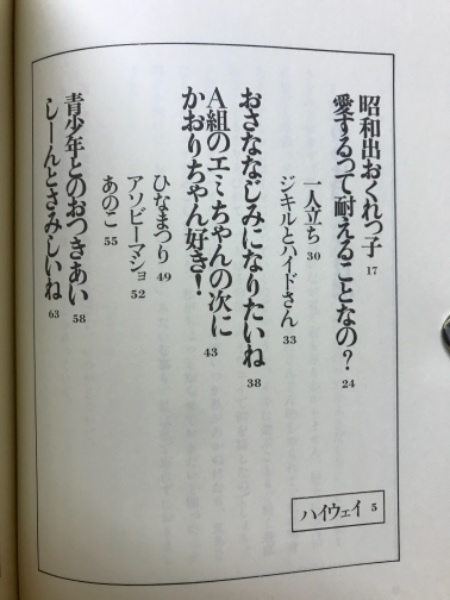 昭和出おくれっ子 17
愛するって耐えることなの? 24
一人立ち 30
ジキルとハイドさん 33
おさななじみになりたいね 38
A組のエミちゃんの次に
かおりちゃん好き! 43
ひなまつり 49
アソビーマショ 52
あのこ 55
青少年とのおつきあい 58
しーんとさみしいね 63
ハイウェイ 5